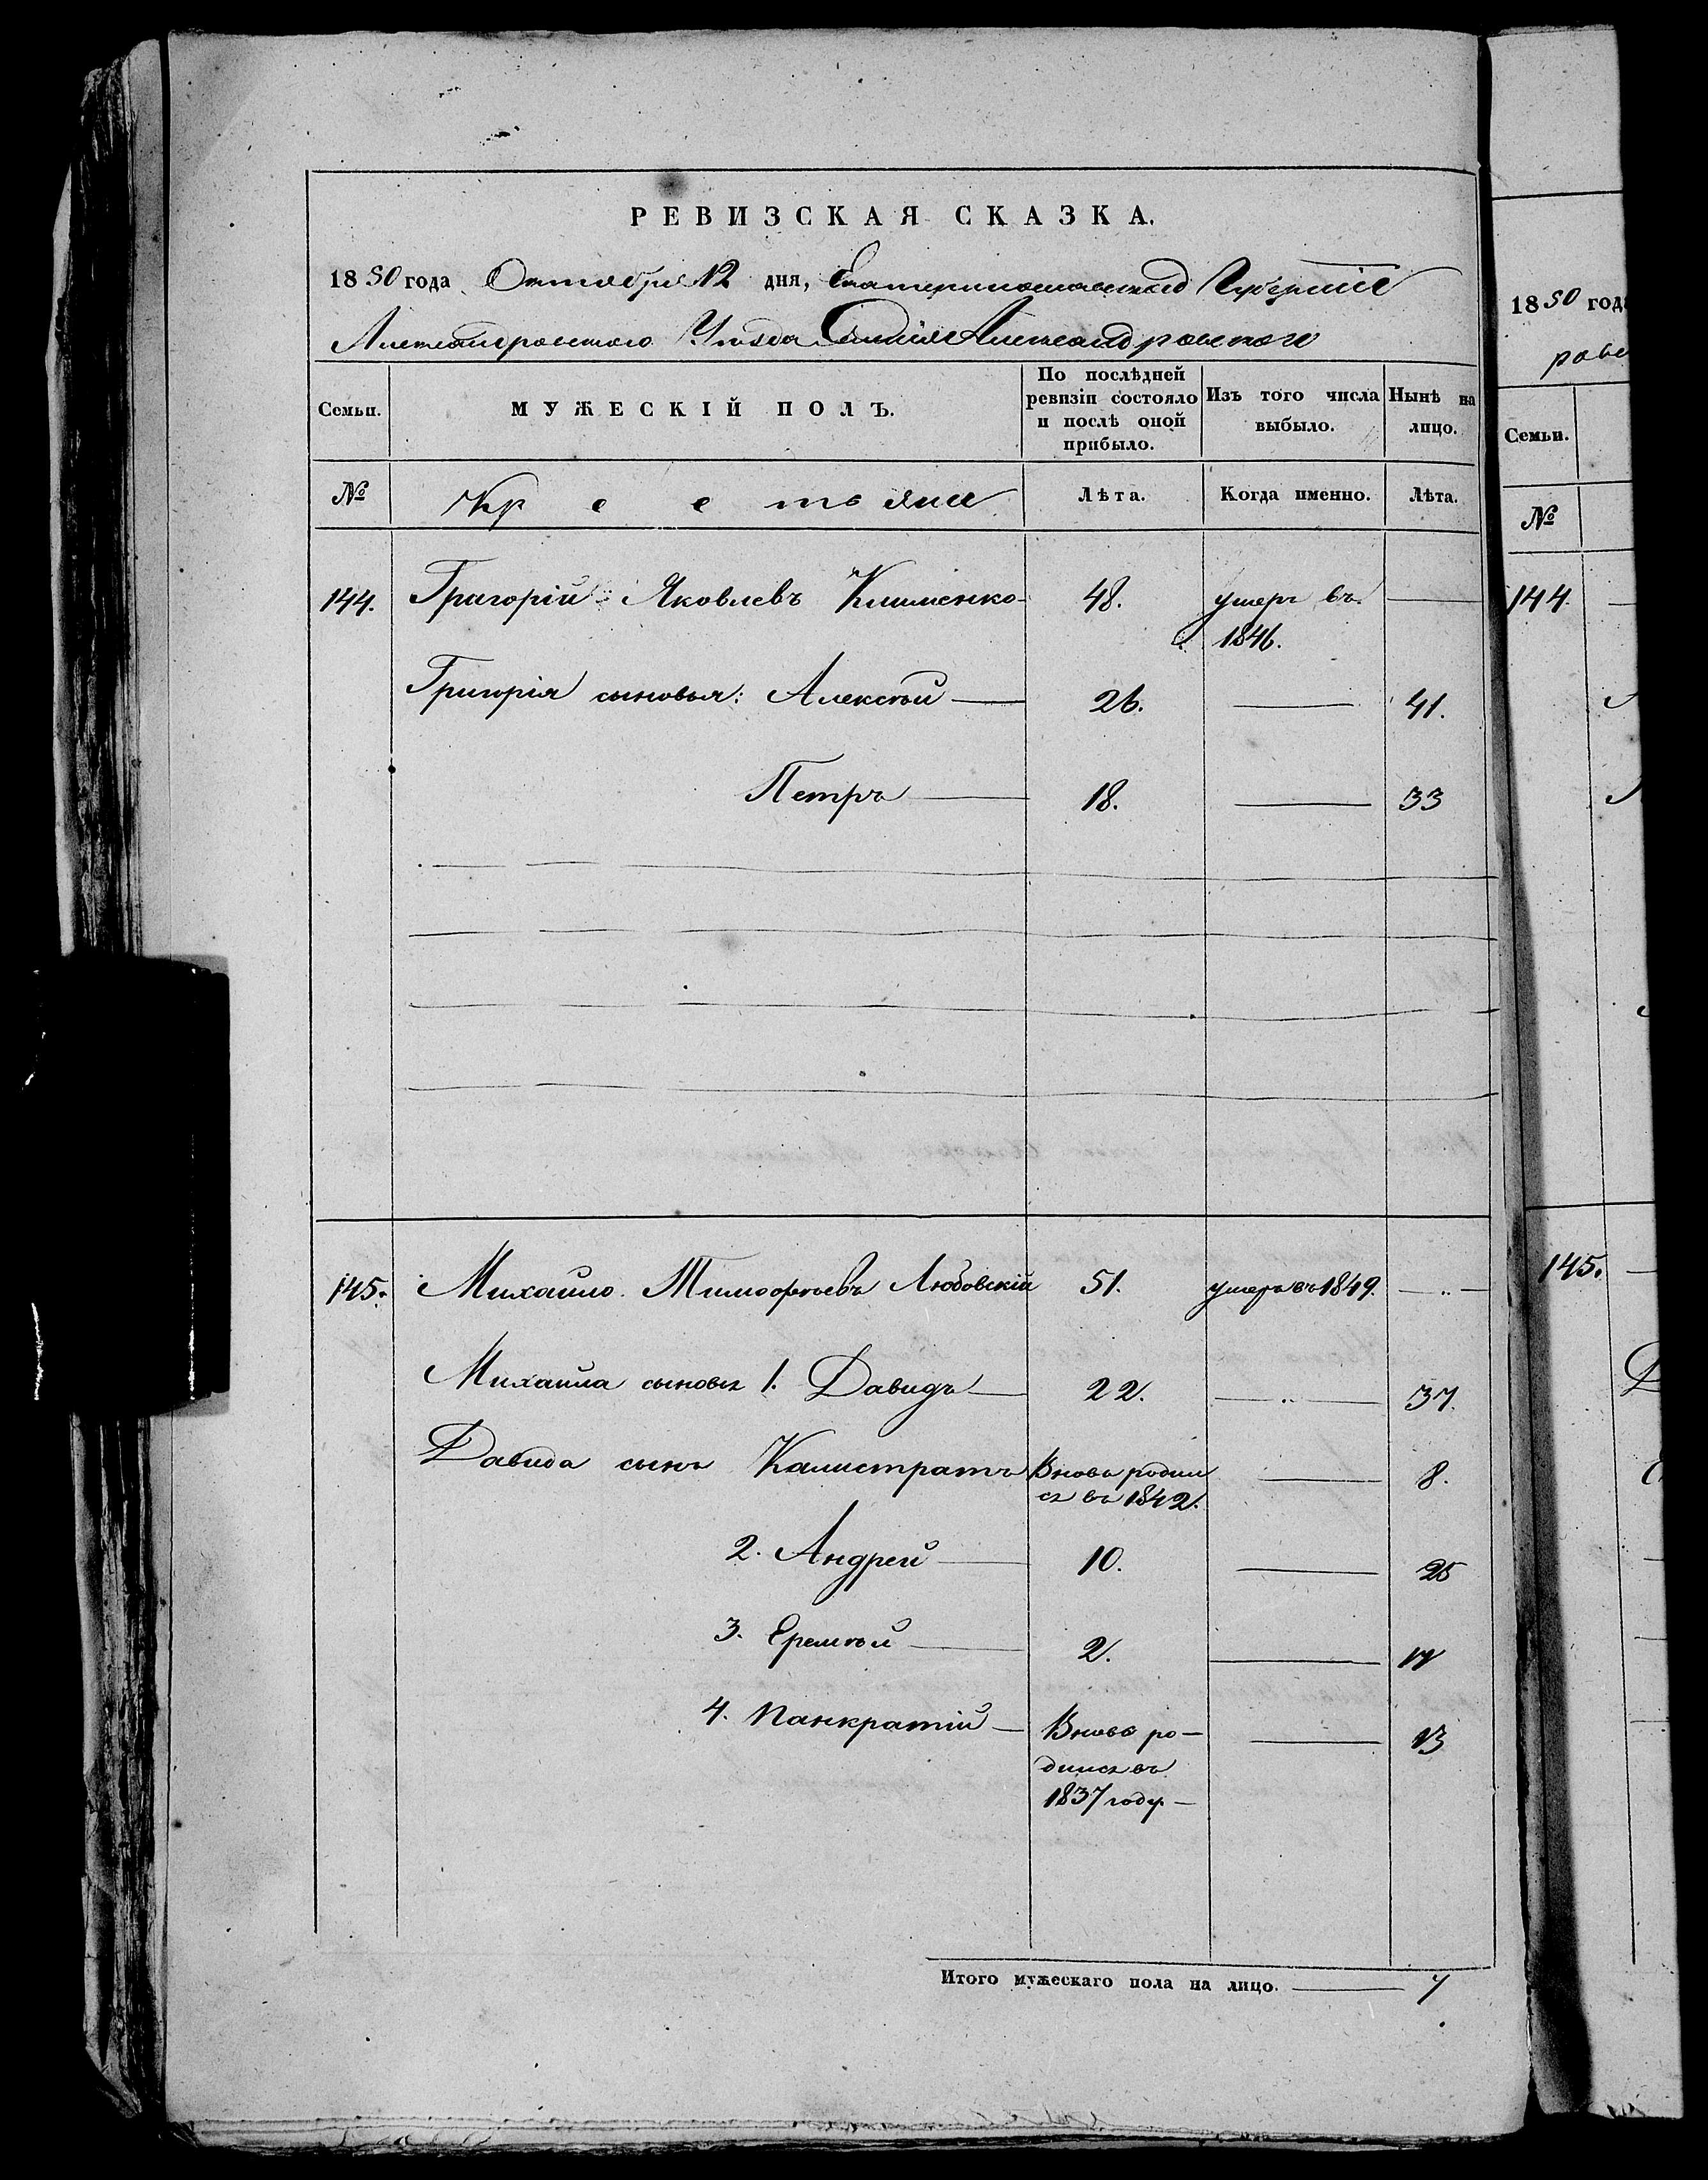 РЕВИЗСКАЯ СКАЗКА.
1850 года Октября 12 дня, Екатеринославской Губернии
Александровского Уезда Александровского
Семьи. МУЖЕСКІЙ ПОЛЪ. По послѣдней ревизіи состояло и послѣ оной прибыло. Изъ того числа выбыло. Нынѣ на лицо.
№ Крестьяне Лѣта. Когда именно. Лѣта.
144. Григорій Яковлевъ Клименко 48. умеръ въ
1846.
Григорія сыновья: Алексѣй 26. 41.
Петръ 18. 33
145. Михайло Тимофѣевъ Любовскій 51. умеръ въ 1849.
Михаила сыновья 1. Давидъ 22. 37.
Давида сынъ Калистратъ Вновь родил 8.
ся въ 1842.
2. Андрей 10. 25
3. Еремѣй 2. 17
4. Панкратій Вновь ро- 13
дился въ
1837 году
Итого мужескаго пола на лицо. 7
1850 года
рове
Семьи.
№
144.
145.